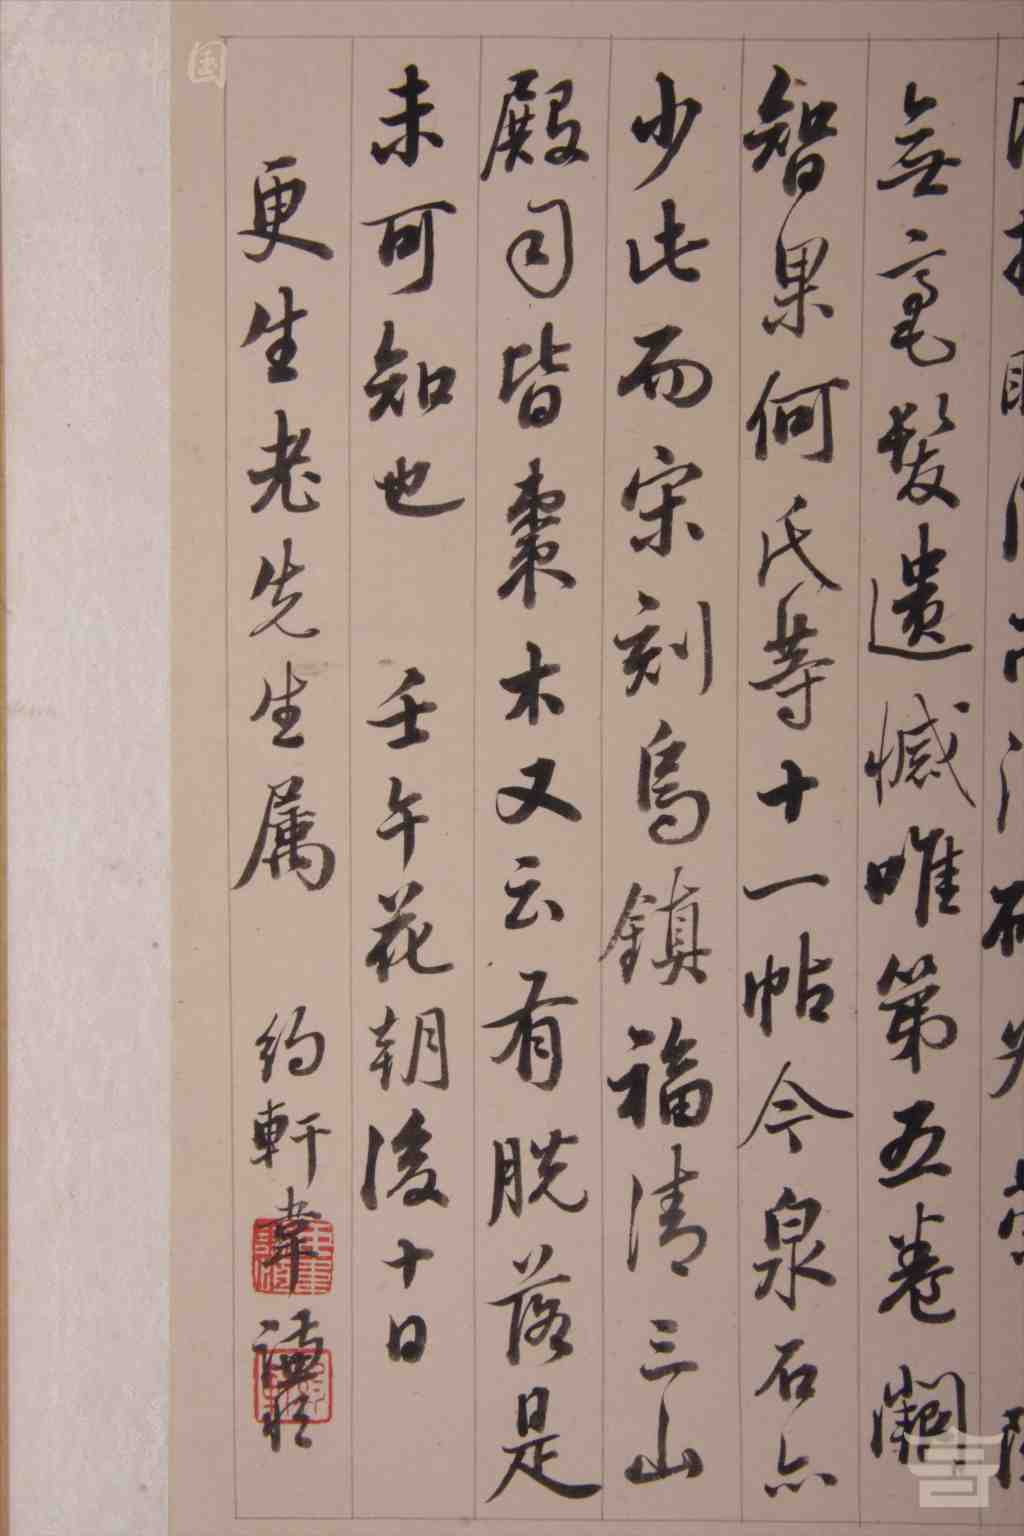 無毫髮遺憾唯第五卷闕
智果何氏等十一帖今泉石亦
少此而宋刻烏鎮福清三山
殿司皆棗木又云有脱落是
未可知也 壬午花朝後十日
更生老先生属 約軒韋
国